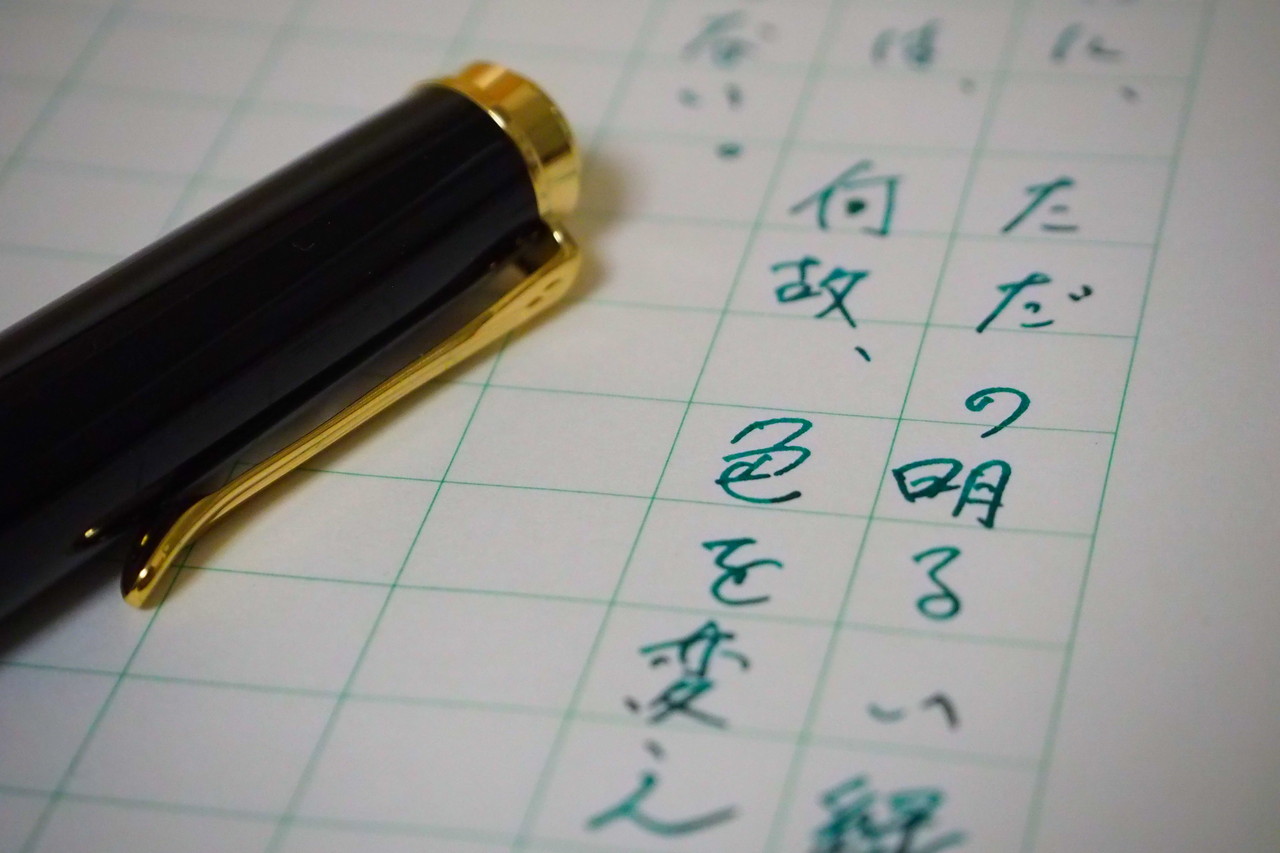 に、ただの明るい緑
は、何故、色を変え
ない。